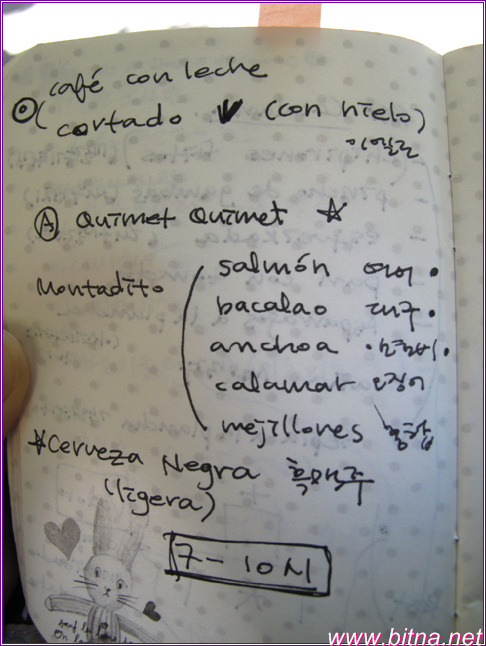 café con leche
cortado (con hielo)
Ⓐ Quimet Quimet ☆
Montadito
salmón 연어
bacalao 대구
anchoa
calamar 오징어
mejillones 홍합
☆ Cerveza Negra 흑맥주
(ligera)
7-10M
www.bitna.net